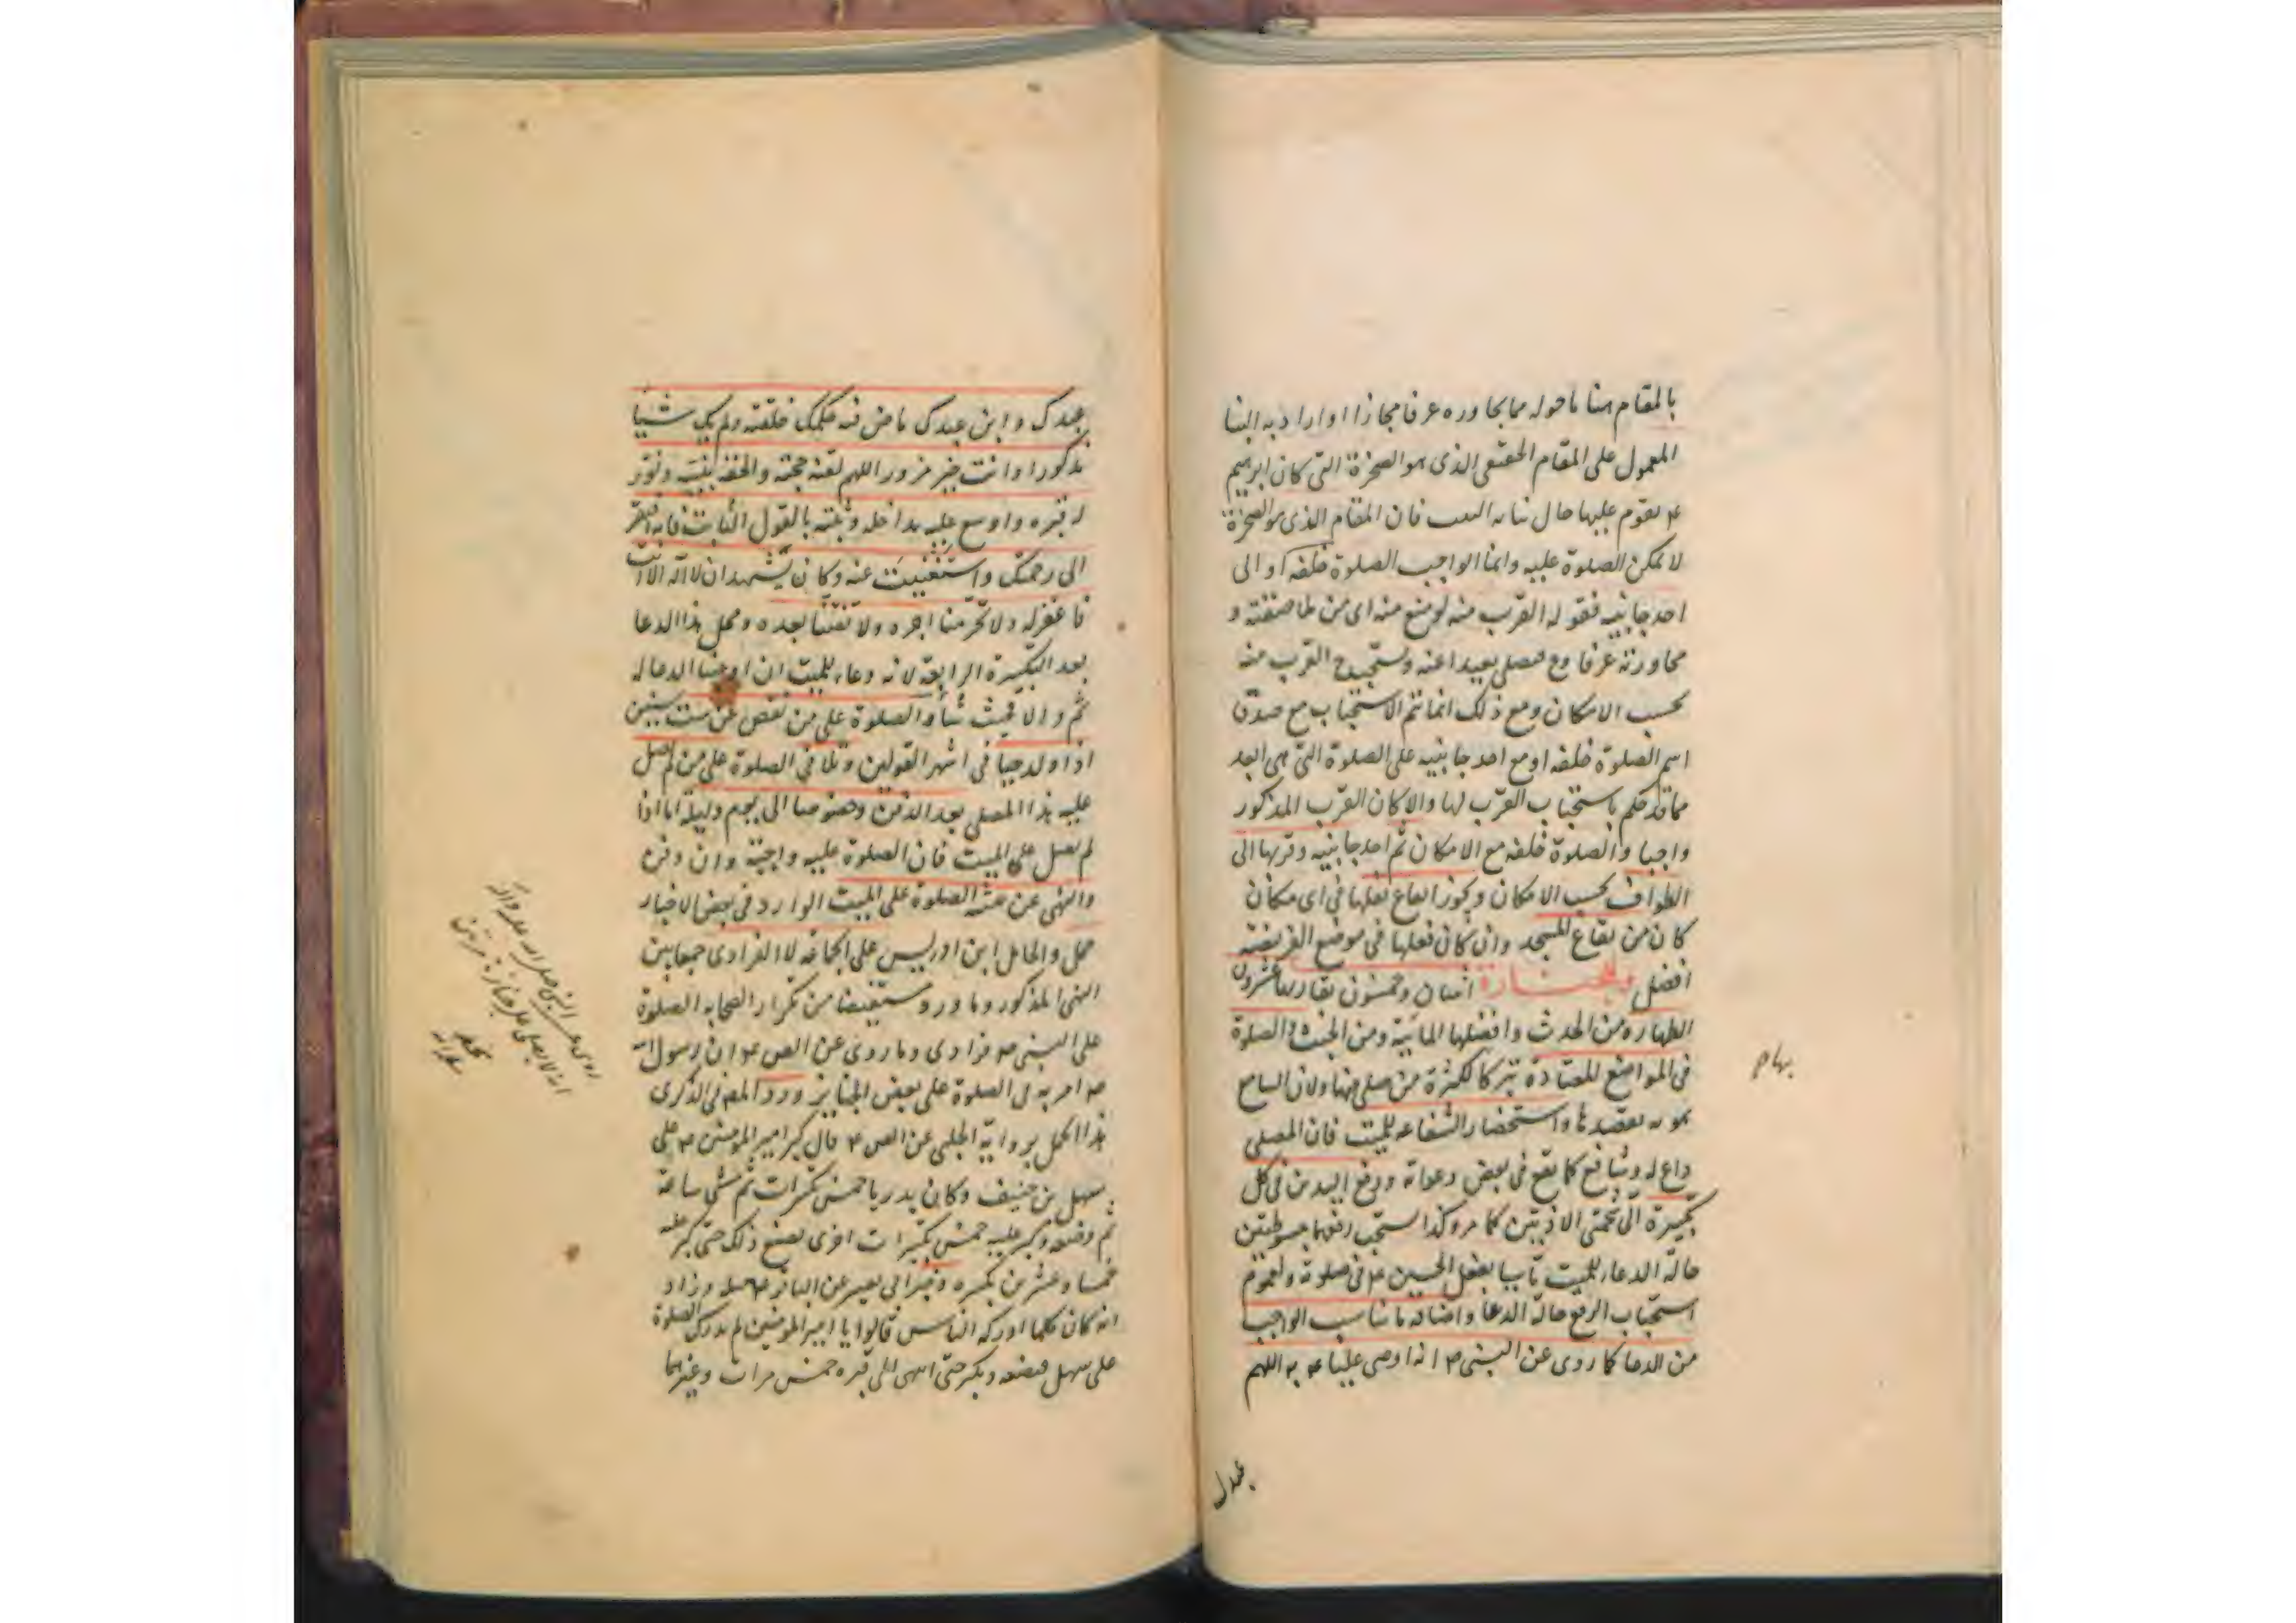 بالمقام هنا ما حوله مما يجاوره عرفا مجازا او اراد به البنا
المعمول على المقام الحقيقى الذى هو الصخرة التى كان ابرهيم
ع يقوم عليها حال بنائه البيت فان المقام الذى هو الصخرة
لا يمكن الصلوة عليه وانما الواجب الصلوة خلفه او الى
احد جانبيه فقوله القرب منه لو منع منه اى من ملاصقته و
مجاورته عرفا وح فيصلى بعيدا عنه ويستحب ح القرب منه
بحسب الامكان ومع ذلك انما يتم الاستحباب مع صدق
اسم الصلوة خلفه او مع احد جانبيه على الصلوة التى هى ابعد
مما قد حكم باستحباب القرب لها والا كان القرب المذكور
واجبا والصلوة خلفه مع الامكان ثم احد جانبيه وقربها الى
الطواف بحسب الامكان ويجوز ايقاع نفلها فى اى مكان
كان من بقاع المسجد وان كان فعلها فى موضع الفريضة
افضل وللجنازة اثنان وخمسون يقارنها عشرون
الطهاره من الحدث وافضلها المائية ومن الخبث والصلوة
فى المواضع المعتادة تبركا لكثرة من صلى فيها ولان السامع
بموته يقصدها واستحضار الشفاعه للميت فان المصلى
داع له وشافع كما يقع فى بعض دعواته ورفع اليدين فى كل
تكبيرة الى شحمتى الاذنين كما مر وكذا يستحب رفعهما مبسوطتين
حالة الدعاء للميت تأسيا بفعل الحسين ع فى صلوته ولعموم
استحباب الرفع حالة الدعا واضافه ما يناسب الواجب
من الدعا كما روى عن النبى ص انه اوصى عليا ع به اللهم
عبدك
عبدك وابن عبدك ماض فيه حكمك خلقته ولم يك شيئا
مذكورا وانت خير مزور اللهم لقنه حجته والحقه بنبيه ونور
له قبره واوسع عليه مداخله وثبته بالقول الثابت فانه افتقر
الى رحمتك واستغنيت عنه وكان يشهد ان لا اله الا انت
فاغفر له ولا تحرمنا اجره ولا تفتنا بعده ومحل هذا الدعا
بعد التكبيرة الرابعة لانه دعاء للميت ان اوجبنا الدعا له
ثم والا فحيث شاء والصلوة على من نقص عن ست سنين
اذا ولد حيا فى اشهر القولين وثلاثا فى الصلوة على من لم يصل
عليه هذا المصلى بعد الدفن وخصوصا الى يوم وليلة اما اذا
لم يصل على الميت فان الصلوة عليه واجبة وان دفن
والنهى عن تثنية الصلوة على الميت الوارد فى بعض الاخبار
حمل والحامل ابن ادريس على الجماعه لا الفرادى جمعا بين
النهى المذكور وما ورد مستفيضا من تكرار الصحابه الصلوة
على النبى ص فرادى وما روى عن الص ع ان رسول الله
ص امر به فى الصلوة على بعض الجنايز ورد المص فى الذكرى
هذا الحمل برواية الحلبى عن الص ع قال كبر امير المومنين ع على
سهل بن حنيف وكان بدريا خمس تكبيرات ثم مشى ساعة
ثم وضعه وكبر عليه خمس تكبيرات اخرى يصنع ذلك حتى كبر عليه
خمسا وعشرين تكبيره وخبر ابى بصير عن الباقر ع مثله وزاد
انه كان كلما ادركه الناس قالوا يا امير المومنين لم ندرك الصلوة
على سهل فيضعه ويكبر حتى انتهى الى قبره خمس مرات وغيرهما
روى عن النبى صلى الله عليه واله
انه لا يصلى على جنازة مرتين